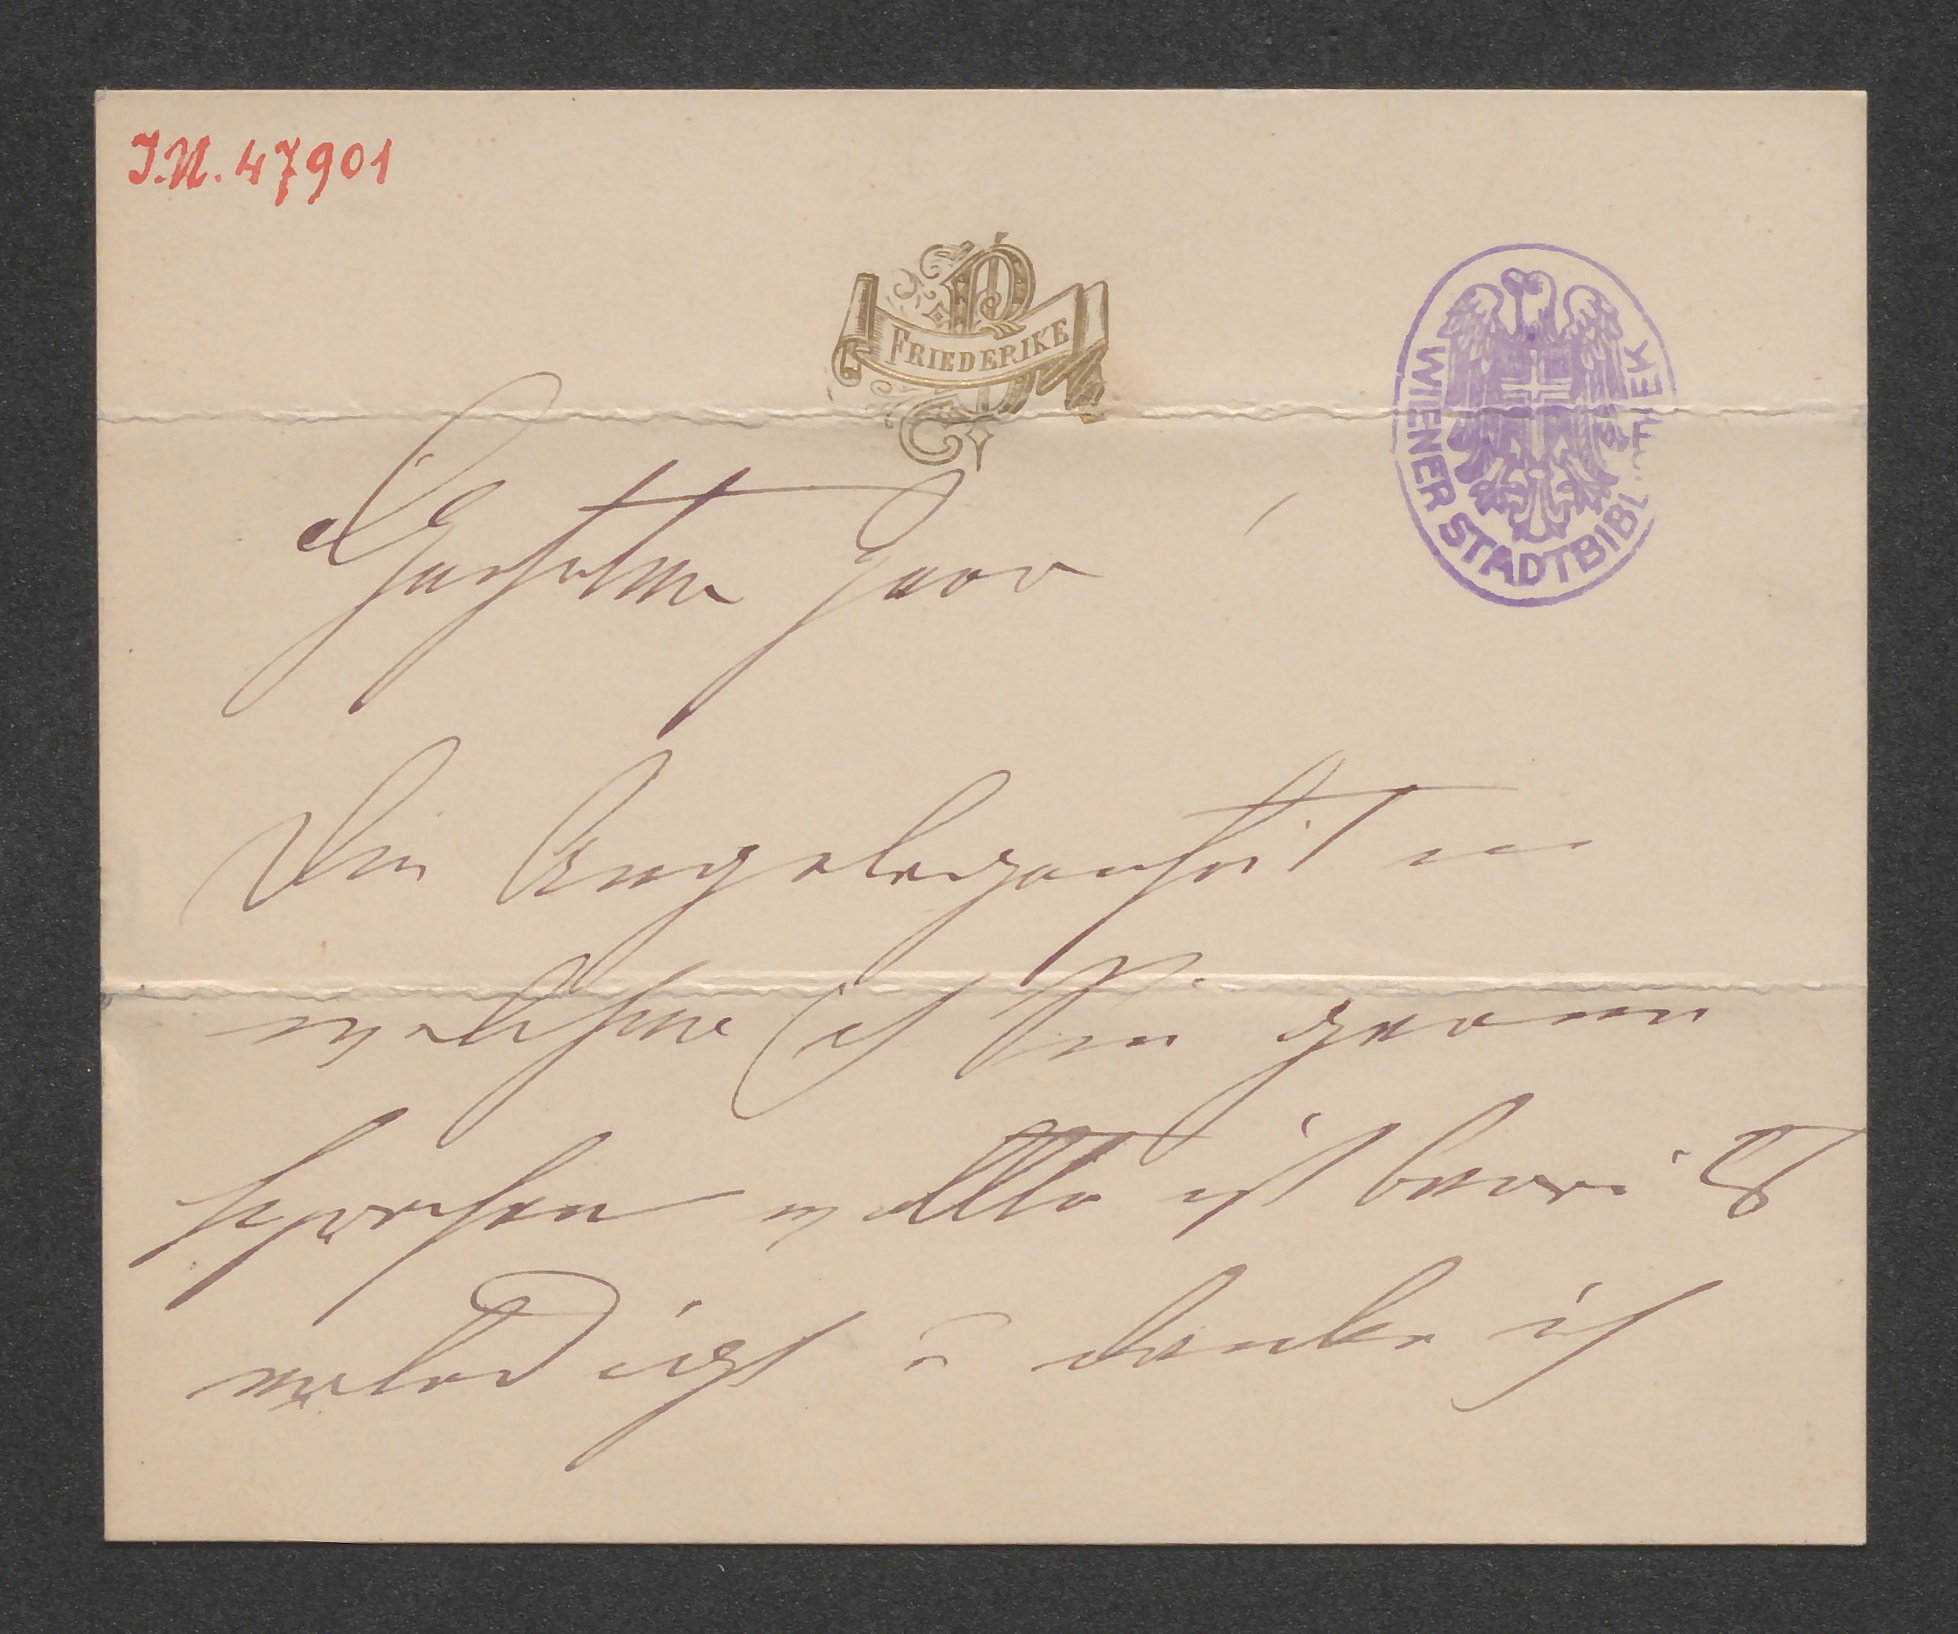 J.N. 47901
FRIEDERIKE
WIENER STADTBIBLIOTHEK
Geehrter Herr
Die Angelegenheit in
welcher ich Sie gerne
sprechen wollte ist bereits
erledigt u danke ich